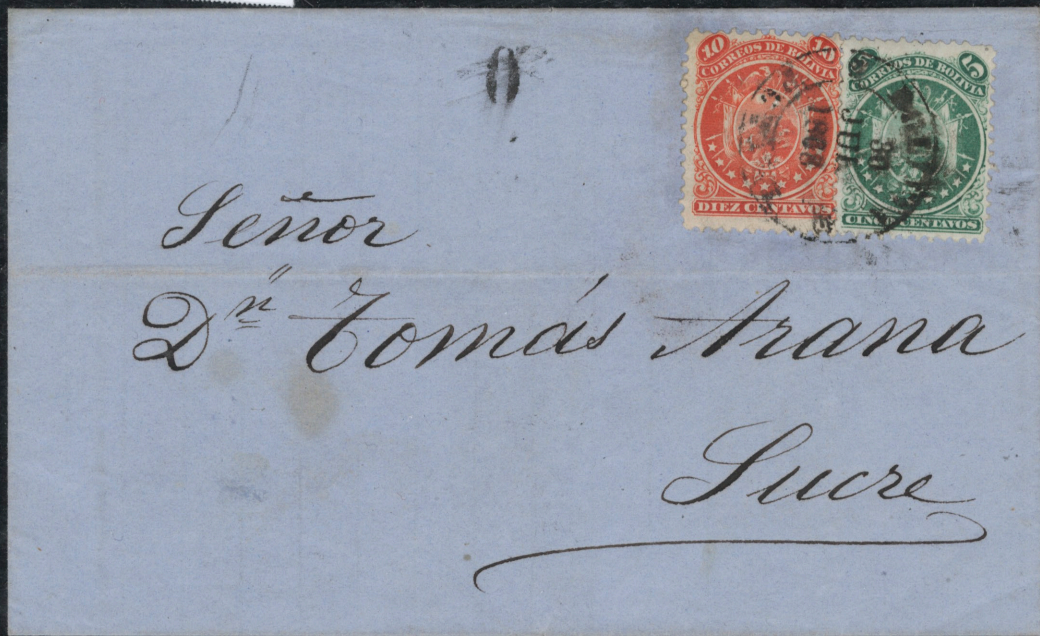 0
10 10
CORREOS DE BOLIVIA
DIEZ CENTAVOS
5 5
CORREOS DE BOLIVIA
CINCO CENTAVOS
JUL
30
Señor
Dn Tomás Arana
Sucre